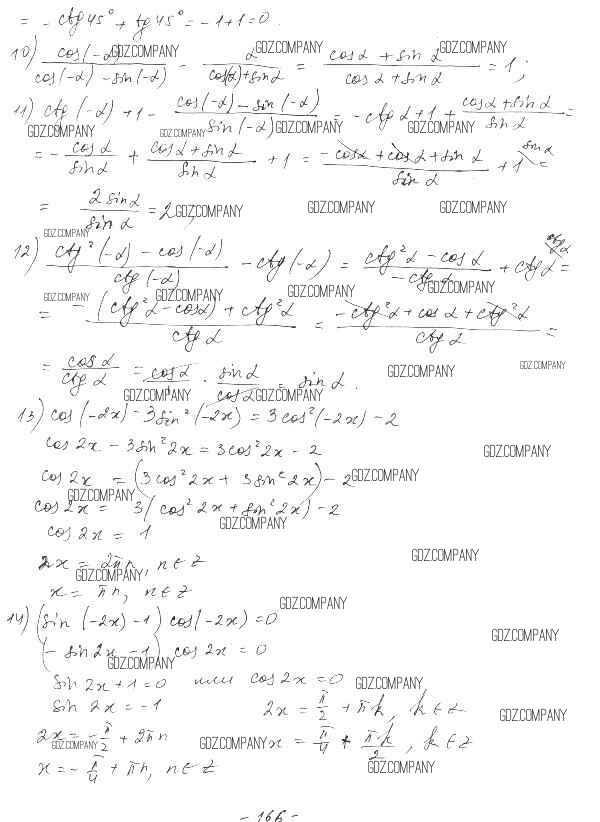 = - ctg 45° + tg 45° = -1+1=0.
10) cos(-α) / (cos(-α) - sin(-α)) - α / (cos(α)+sin α) = (cos α + sin α) / (cos α + sin α) = 1;
GDZ.COMPANY GDZ.COMPANY GDZ.COMPANY
11) ctg(-α)+1 - (cos(-α) - sin(-α)) / sin(-α) = -ctg α+1 + (cos α + sin α) / sin α =
GDZ.COMPANY GDZ.COMPANY GDZ.COMPANY GDZ.COMPANY
= - cos α / sin α + (cos α + sin α) / sin α + 1 = (-cos α + cos α + sin α) / sin α + 1^(sin α) =
= 2 sin α / sin α = 2.
GDZ.COMPANY GDZ.COMPANY GDZ.COMPANY
GDZ.COMPANY
12) (ctg²(-α) - cos(-α)) / ctg(-α) - ctg(-α) = (ctg²α - cos α) / (-ctg α) + ctg α^(ctg α) =
GDZ.COMPANY GDZ.COMPANY GDZ.COMPANY GDZ.COMPANY
= (-(ctg²α - cos α) + ctg²α) / ctg α = (-ctg²α + cos α + ctg²α) / ctg α =
= cos α / ctg α = cos α · sin α / cos α = sin α.
GDZ.COMPANY GDZ.COMPANY
GDZ.COMPANY GDZ.COMPANY
13) cos(-2x) - 3sin²(-2x) = 3cos²(-2x) - 2
cos 2x - 3sin²2x = 3cos²2x - 2
GDZ.COMPANY
cos 2x = (3cos²2x + 3sin²2x) - 2
GDZ.COMPANY GDZ.COMPANY
cos 2x = 3(cos²2x + sin²2x) - 2
GDZ.COMPANY
cos 2x = 1
2x = 2πn, n∈z
GDZ.COMPANY GDZ.COMPANY
x = πn, n∈z
GDZ.COMPANY
14) (sin(-2x) - 1) cos(-2x) = 0
GDZ.COMPANY
(-sin 2x - 1) cos 2x = 0
GDZ.COMPANY
sin 2x + 1 = 0 или cos 2x = 0
GDZ.COMPANY
sin 2x = -1 2x = π/2 + πk, k∈z
GDZ.COMPANY
2x = -π/2 + 2πn x = π/4 + πk/2, k∈z
GDZ.COMPANY GDZ.COMPANY
x = -π/4 + πn, n∈z
GDZ.COMPANY
- 166 -